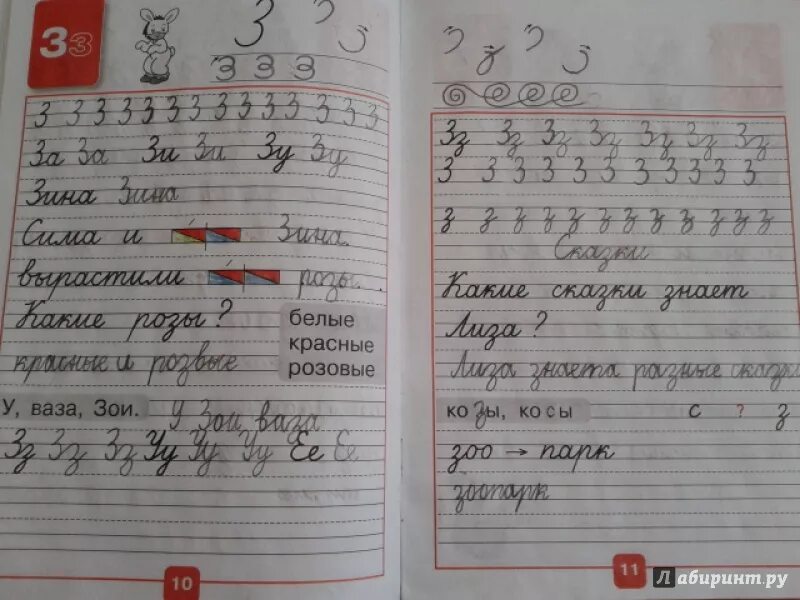 Зз
З
З З З
З З З З З З З З З З З З З З
За За Зи Зи Зу Зу
Зина Зина
Сима и Зина
вырастили розы.
Какие розы ?
белые
красные
розовые
красные и розвые
У, ваза, Зои. У Зои ваза
Зз Зз Зз Уу Уу Уу Ее Ее
10
Зз Зз Зз Зз Зз Зз Зз
З З З З З З З З З З З
з з з з з з з з з з з з
Сказки
Какие сказки знает
Лиза ?
Лиза знаета разные сказки
ко зы, ко сы с ? з
зоо → парк
зоопарк
11
Лабиринт.ру